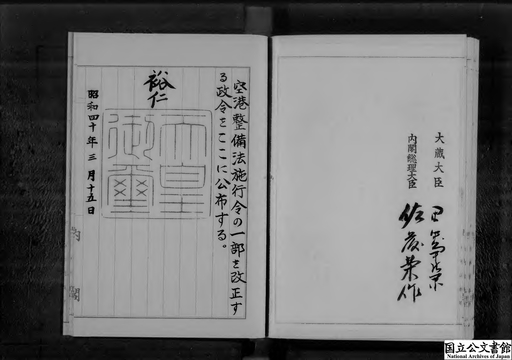 空港整備法施行令の一部を改正す
る政令をここに公布する。
裕仁
天皇
御璽
昭和四十年三月十五日
内閣
大蔵大臣
内閣総理大臣
佐藤栄作
国立公文書館
National Archives of Japan